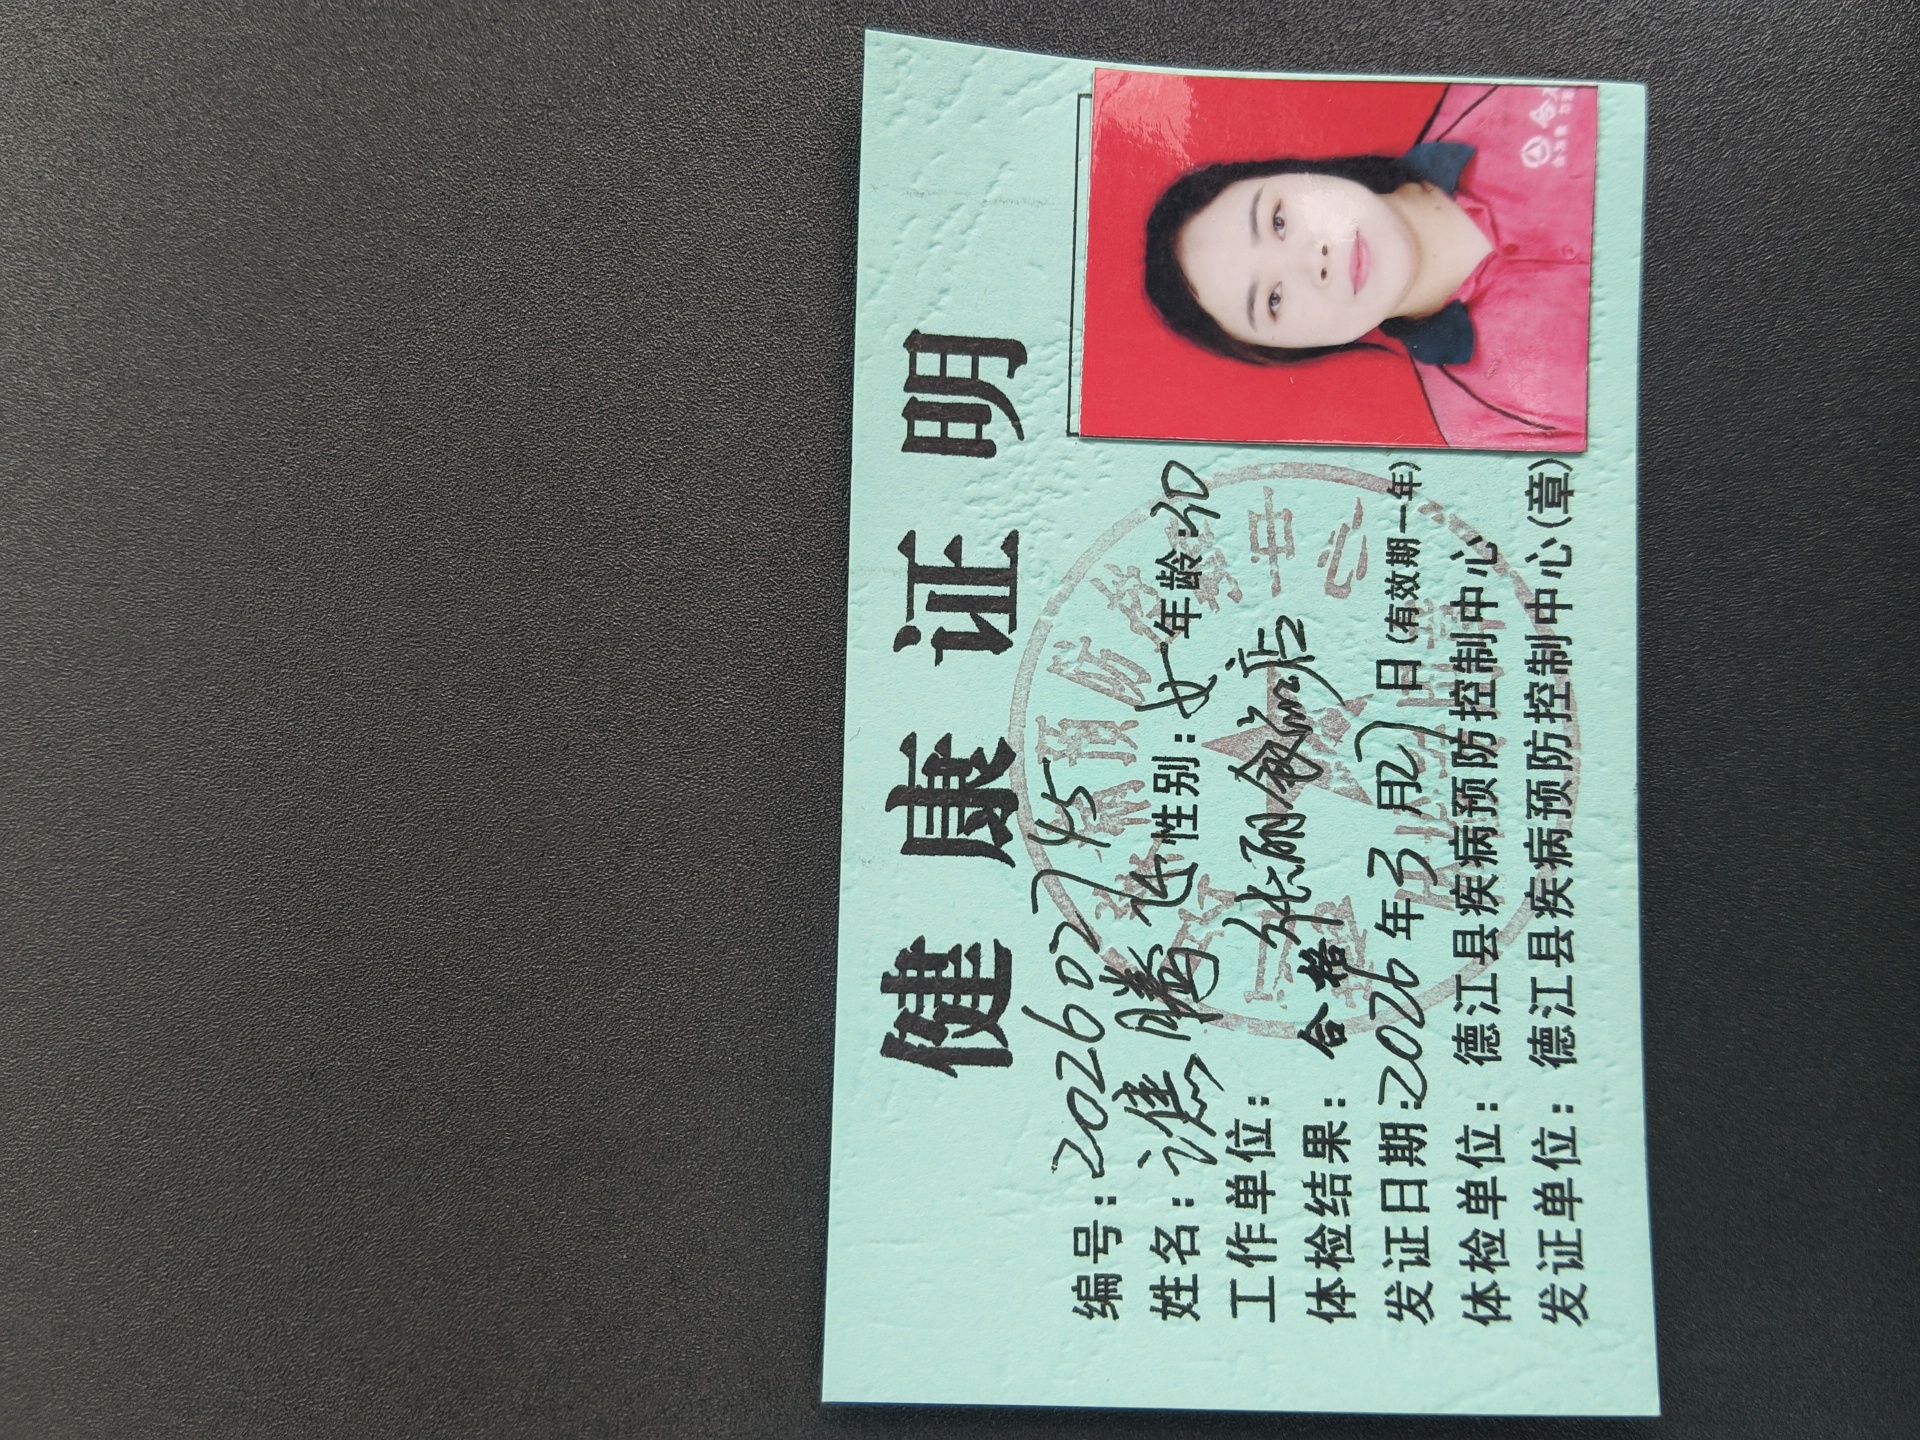 健康证明
编号:202602745
姓名:谯腾飞性别:女年龄:40
工作单位:张丽餐饮店
体检结果:合格
发证日期:2026年3月27日(有效期一年)
体检单位:德江县疾病预防控制中心
发证单位:德江县疾病预防控制中心(章)